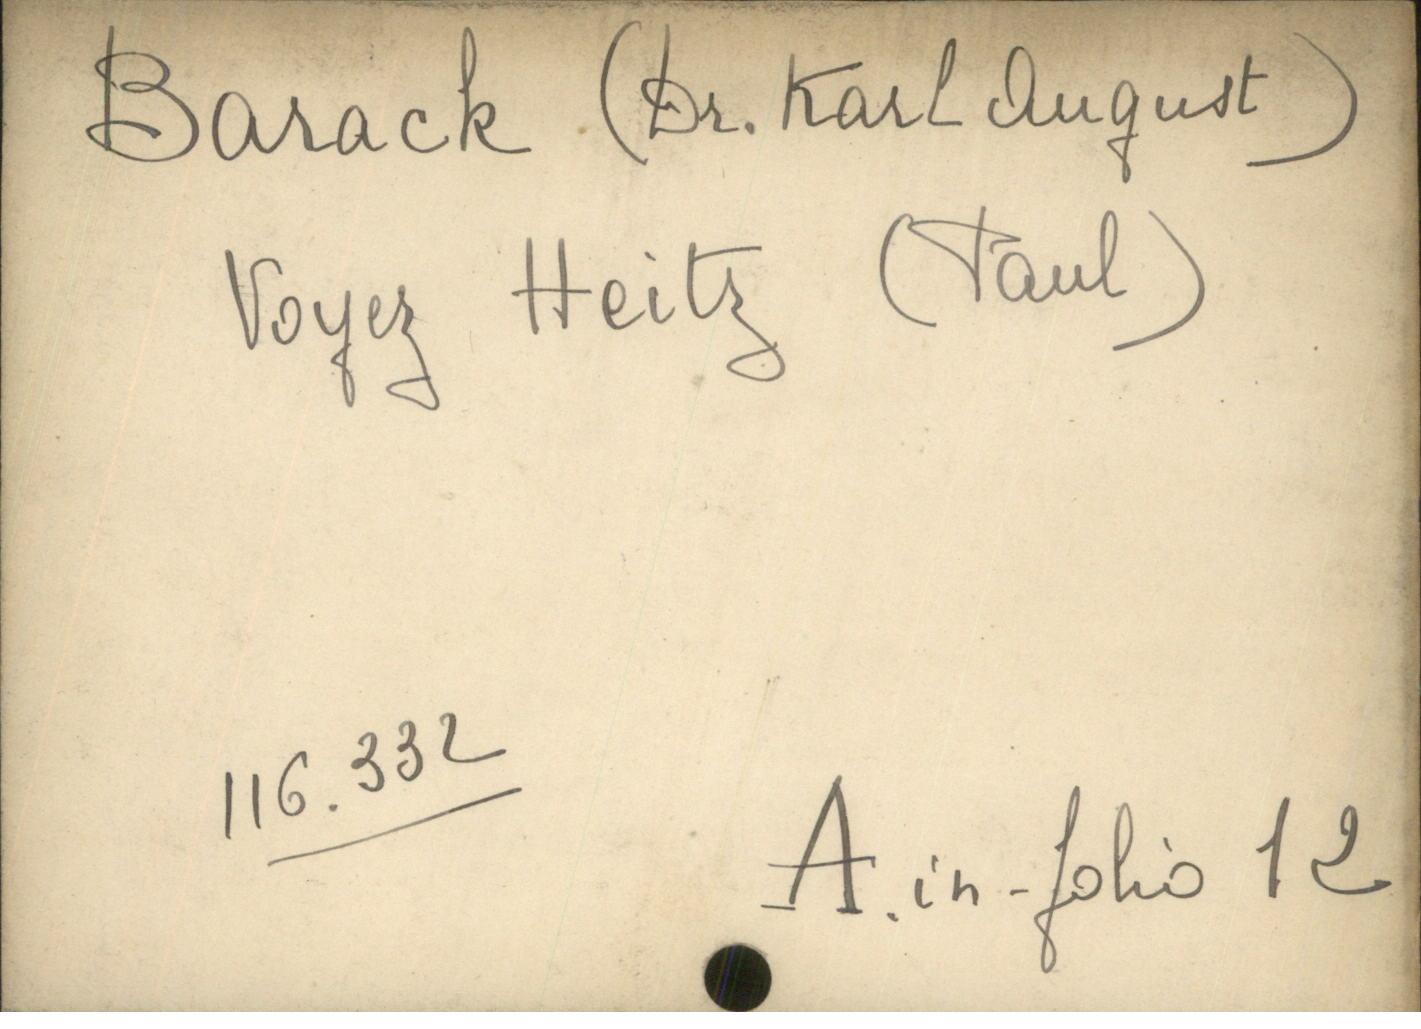 Barack (Dr. Karl August)
Voyez Heitz (Paul)
116.332
A. in-folio 12